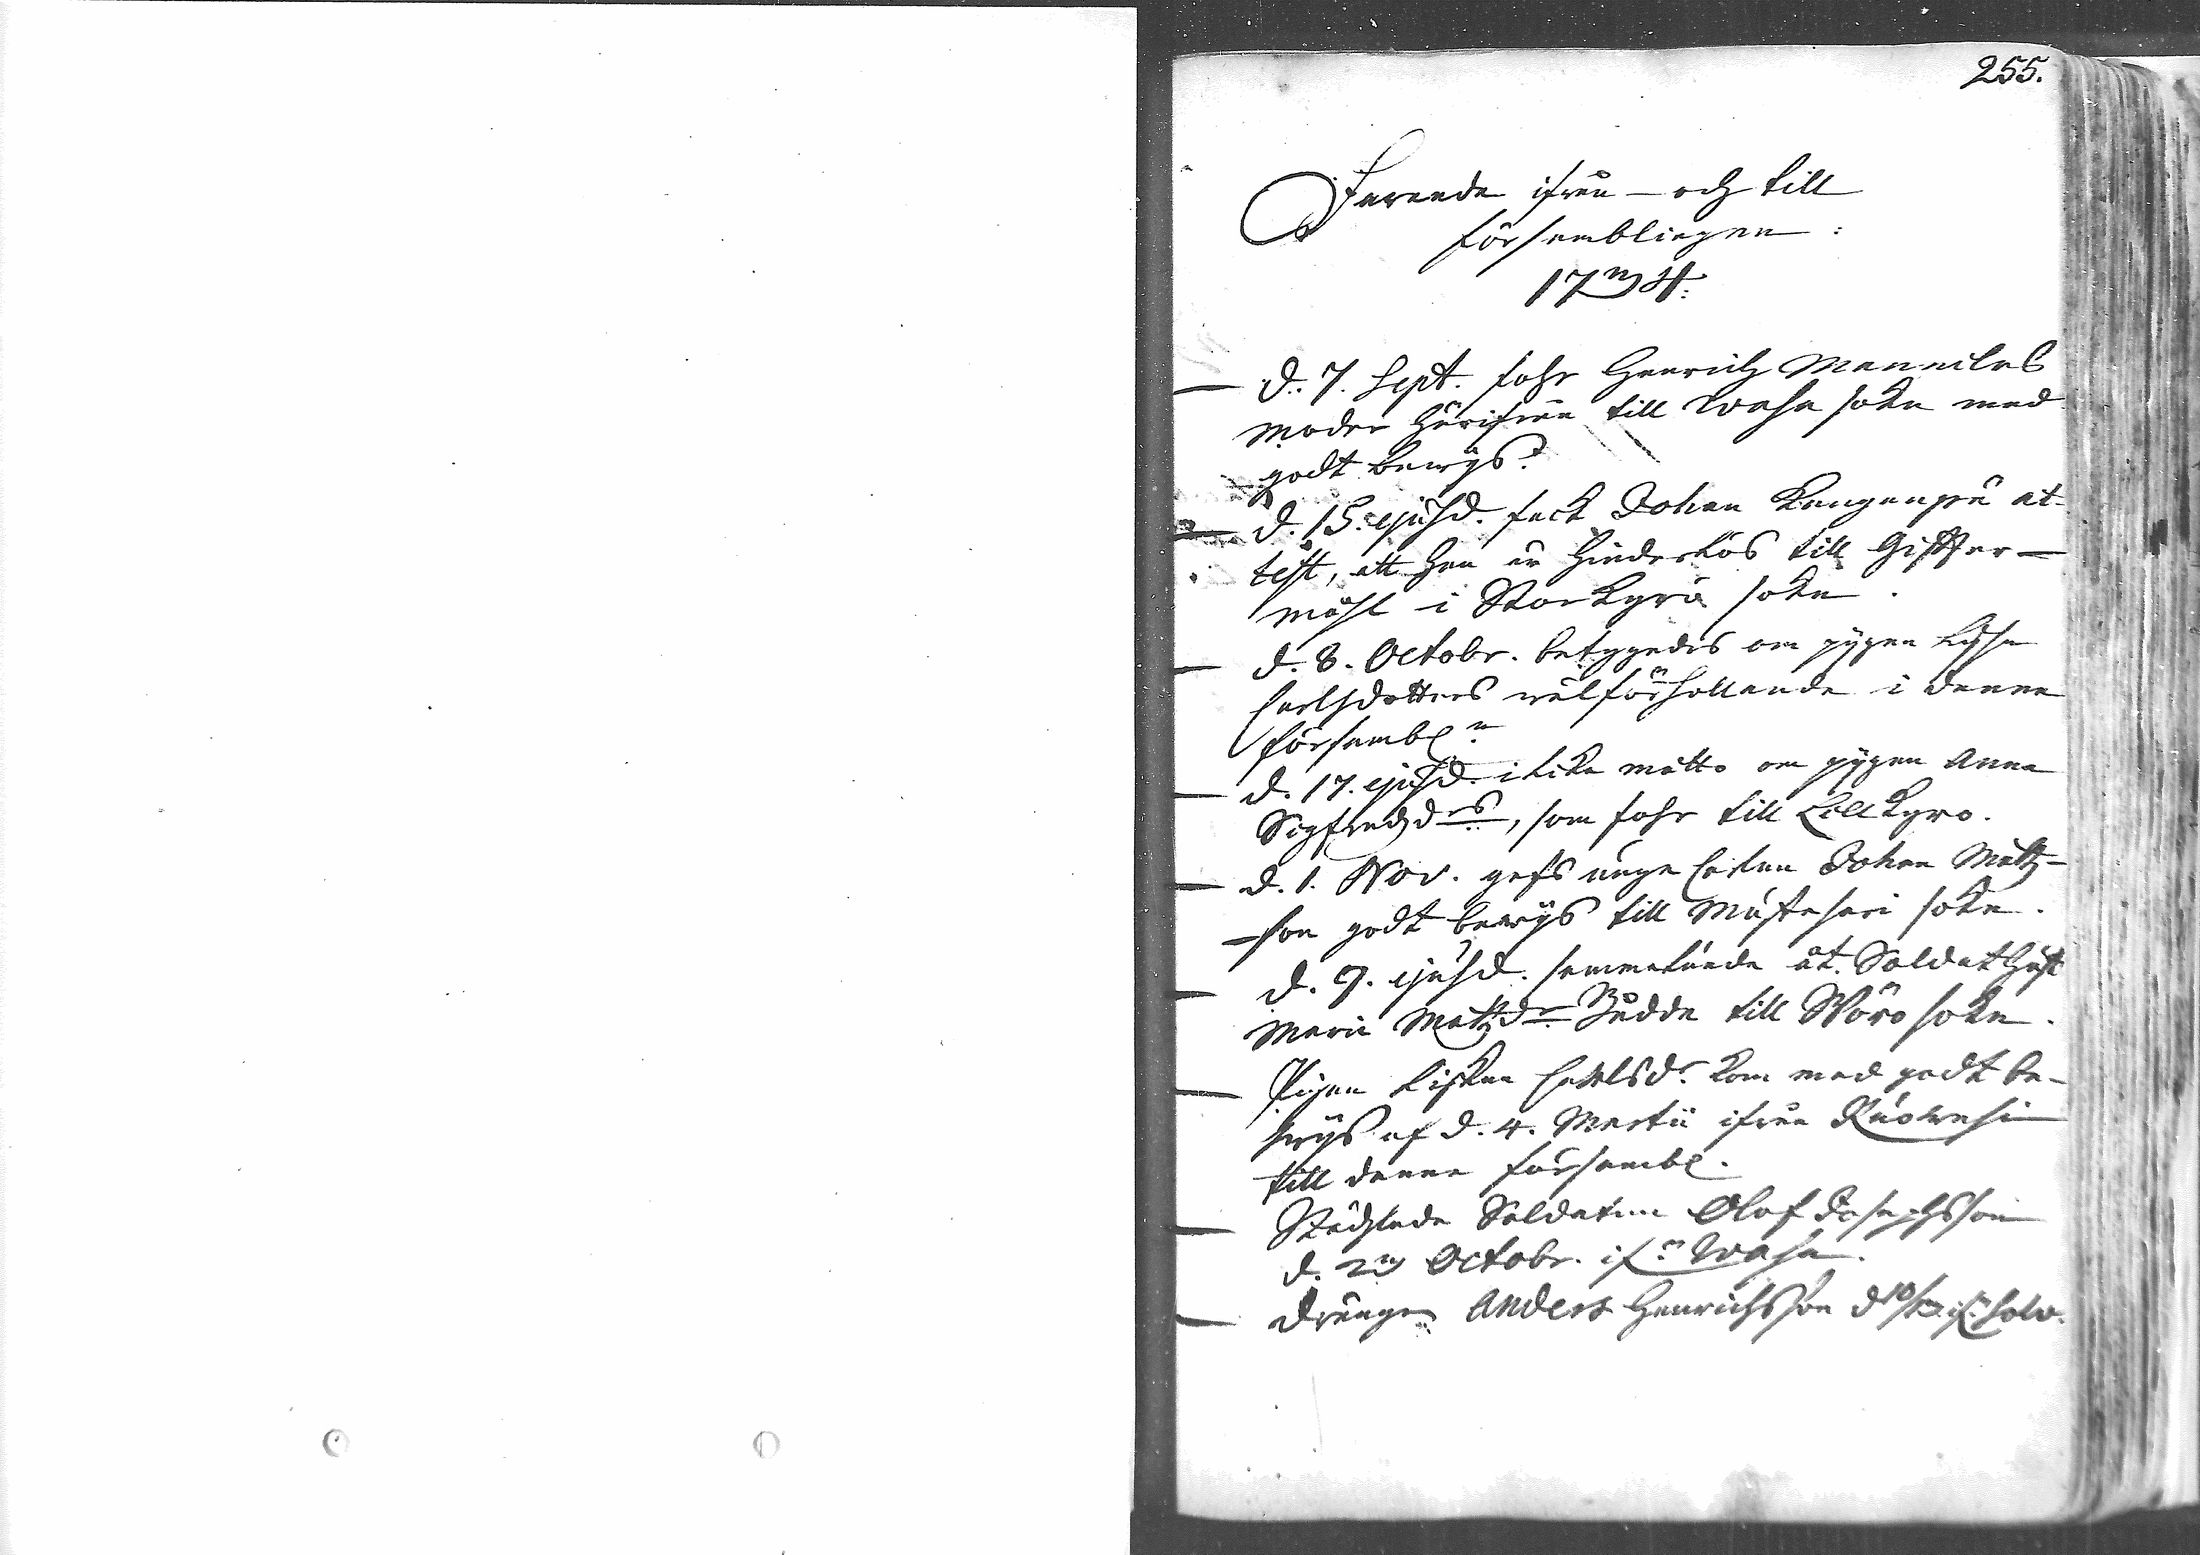 255.
Farande ifrån - och till
församblingen:
17
d. 7. Sept. fohr Henrich Mannilas
moder härifrån till Wasa sokn med
godt bewijs.
d. 15. ejusd. feck Johan Kangenpä at-
test, att han är hinderlös till Gifftar-
måhl i Storkyro sokn.
d. 8. Octobr. betygades om pygan Lisa
Carlsdotters wälförhollande i denna
försambl:n
d. 17. ejusd. i lika motto om pygan Anna
Sigfredzd:rs, som fohr till Lillkyro.
d. 1. Nov. gafs unga Carlen Johan Matz-
son godt bewijs till Mustasari sokn.
d. 9. ejusd. sammalunda åt Soldat Hust
Maria Matzd:r Budda till Wörå sokn.
Pigan Liskan Carlsd:r kom med godt be-
wijs af d. 4. Martii ifrån Ruowesi
till denna försambl.
Städslade Soldaten Olof Josephsson
d. Octobr. if:n Wasa.
drängen Anders Henrichsson d